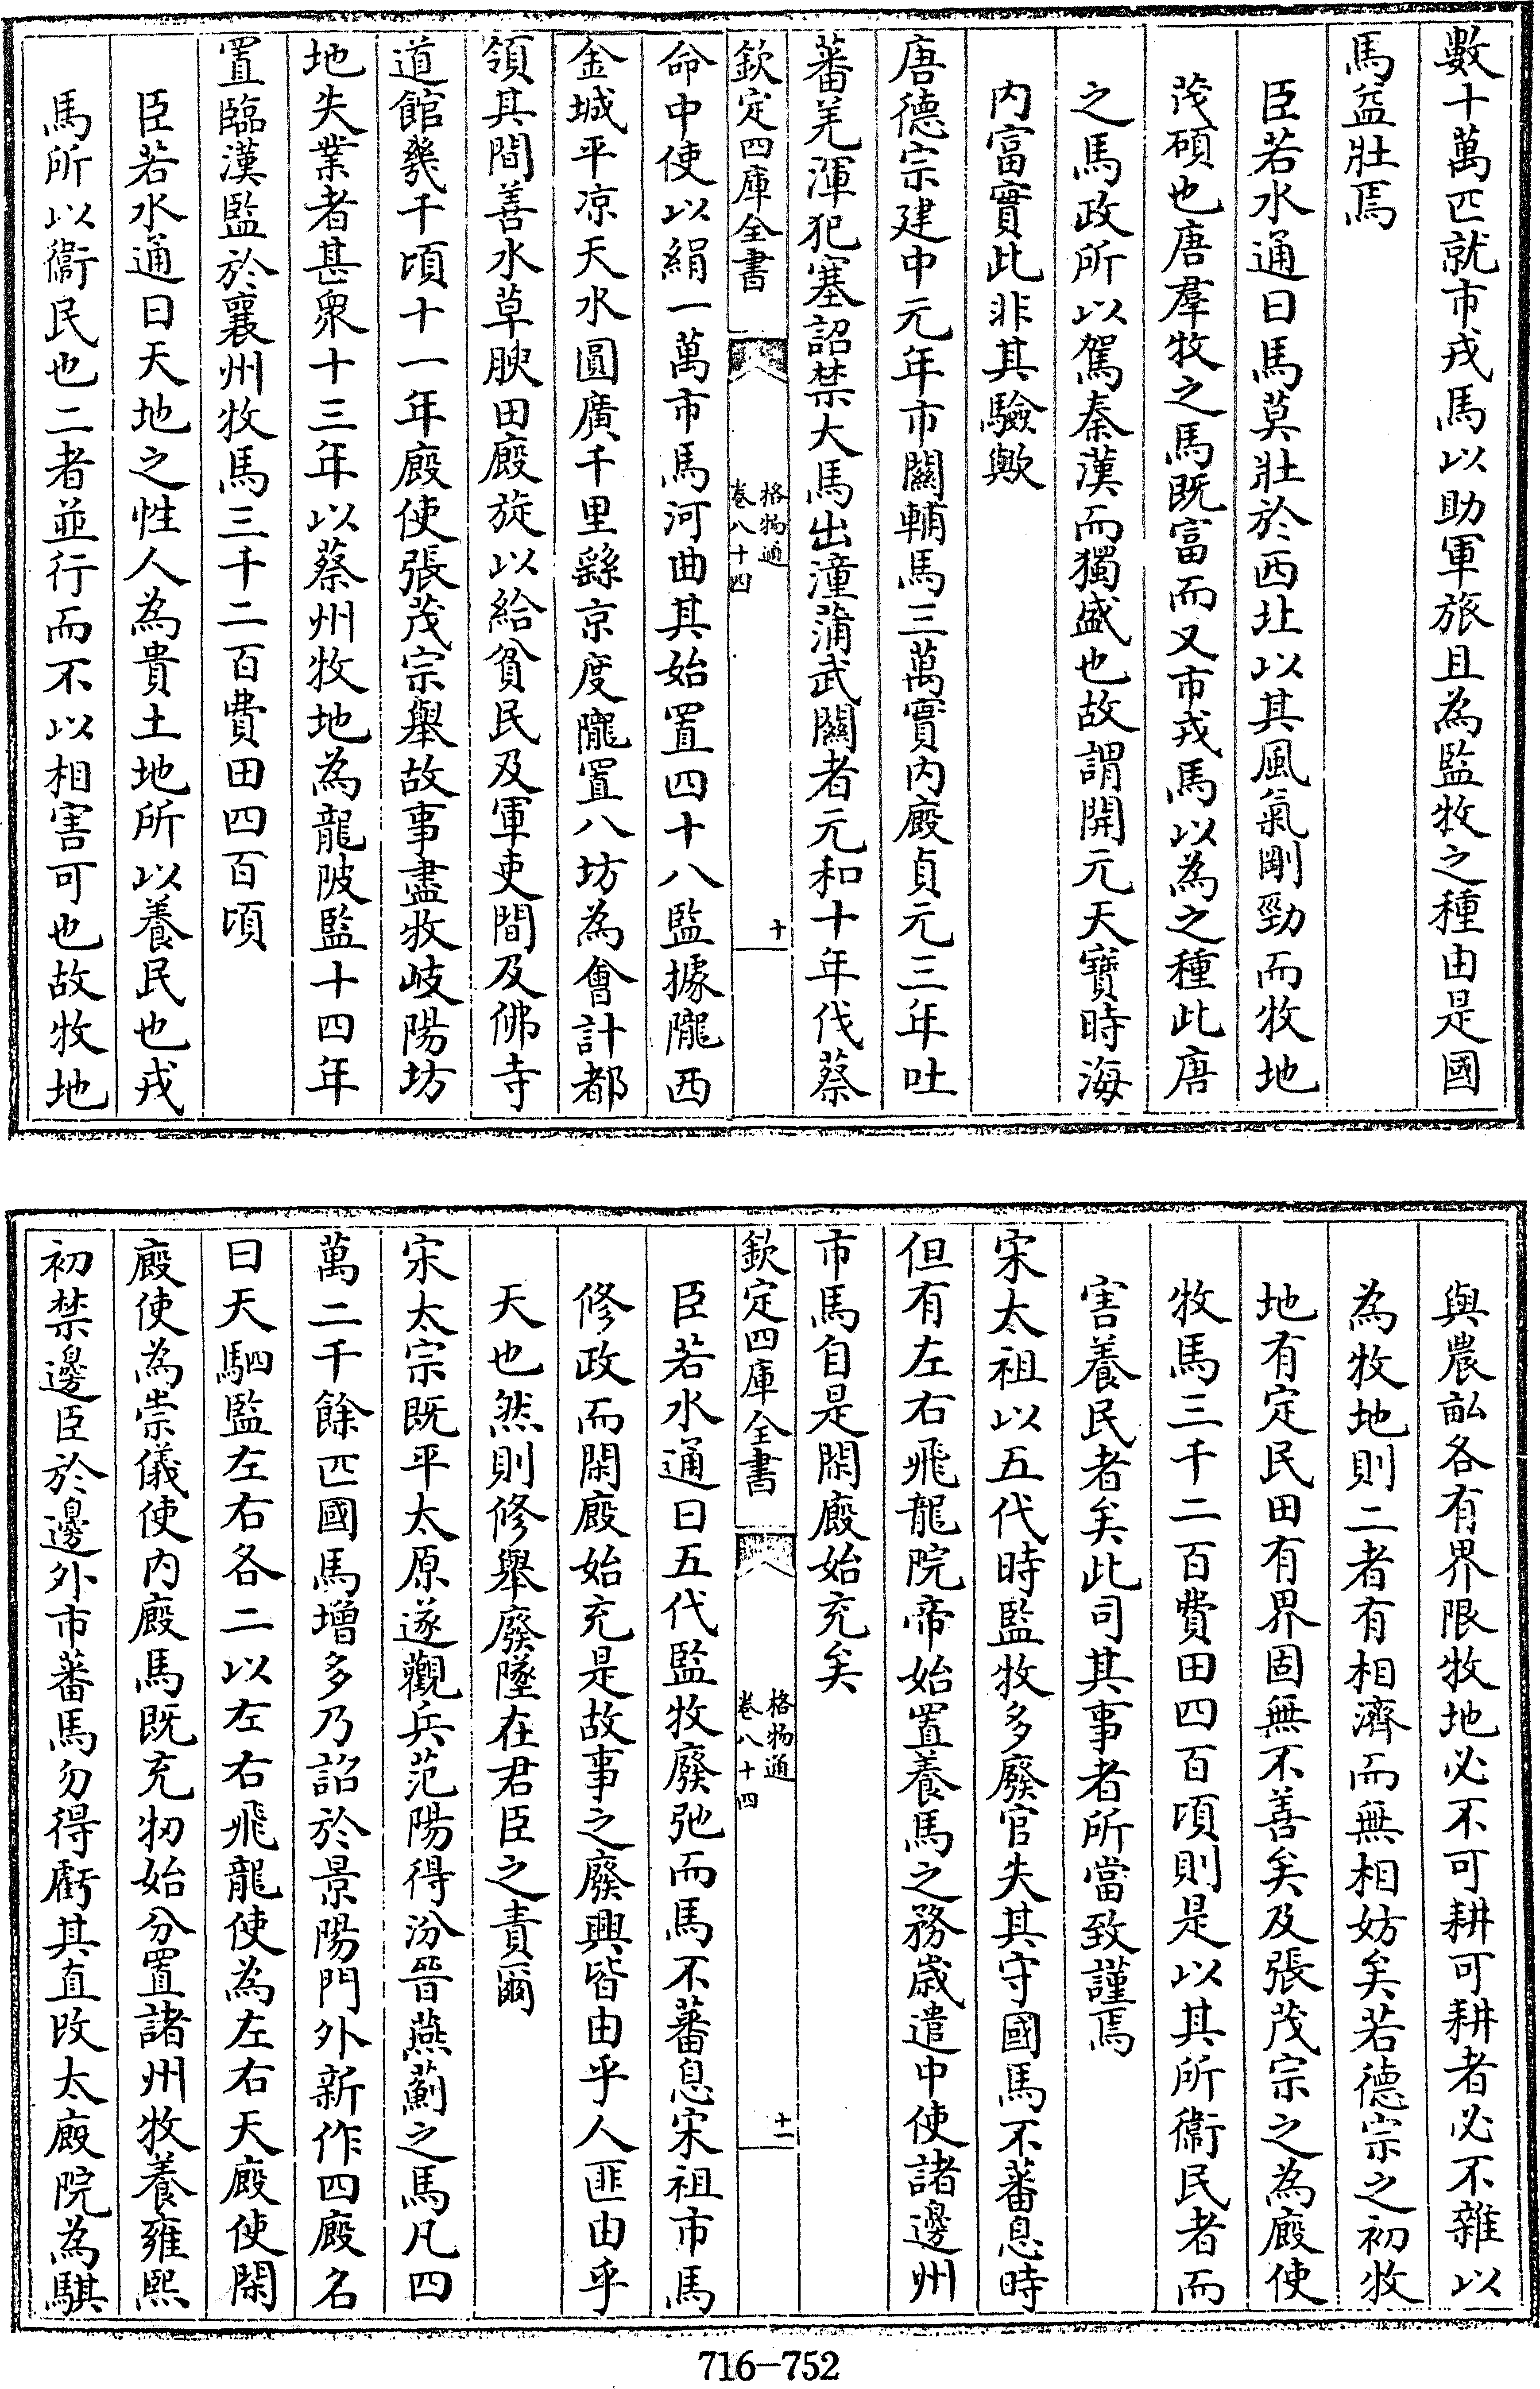 數十萬匹就市戎馬以助軍旅且為監牧之種由是國
馬益壯焉
臣若水通曰馬莫壯於西北以其風氣剛勁而牧地
茂碩也唐羣牧之馬既富而又市戎馬以為之種此唐
之馬政所以駕秦漢而獨盛也故謂開元天寶時海
内富實此非其驗歟
唐德宗建中元年市關輔馬三萬實内廐貞元三年吐
蕃羌渾犯塞詔禁大馬出潼蒲武關者元和十年伐蔡
欽定四庫全書
格物通
卷八十四
十
命中使以絹一萬市馬河曲其始置四十八監據隴西
金城平凉天水圓廣千里繇京度隴置八坊為會計都
領其間善水草腴田廐旋以給貧民及軍吏間及佛寺
道館幾千頃十一年廐使張茂宗舉故事盡收岐陽坊
地失業者甚衆十三年以蔡州牧地為龍陂監十四年
置臨漢監於襄州牧馬三千二百費田四百頃
臣若水通曰天地之性人為貴土地所以養民也戎
馬所以衞民也二者並行而不以相害可也故牧地
與農畝各有界限牧地必不可耕可耕者必不雜以
為牧地則二者有相濟而無相妨矣若德宗之初牧
地有定民田有界固無不善矣及張茂宗之為廐使
牧馬三千二百費田四百頃則是以其所衞民者而
害養民者矣此司其事者所當致謹焉
宋太祖以五代時監牧多廢官失其守國馬不蕃息時
但有左右飛龍院帝始置養馬之務歲遣中使諸邊州
市馬自是閑廐始充矣
欽定四庫全書
格物通
卷八十四
十一
臣若水通曰五代監牧廢弛而馬不蕃息宋祖市馬
修政而閑廐始充是故事之廢興皆由乎人匪由乎
天也然則修舉廢墜在君臣之責爾
宋太宗既平太原遂觀兵范陽得汾晉燕薊之馬凡四
萬二千餘匹國馬增多乃詔於景陽門外新作四廐名
曰天駟監左右各二以左右飛龍使為左右天廐使閑
廐使為崇儀使内廐馬既充牣始分置諸州牧養雍熙
初禁邊臣於邊外市蕃馬勿得虧其直改太廐院為騏
716-752